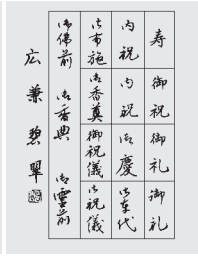 寿 御祝 御礼 御礼
内祝 内祝 御慶 御車代
御布施 御香奠 御祝儀 御祝儀
御佛前 御香典 御霊前
広兼碧翠